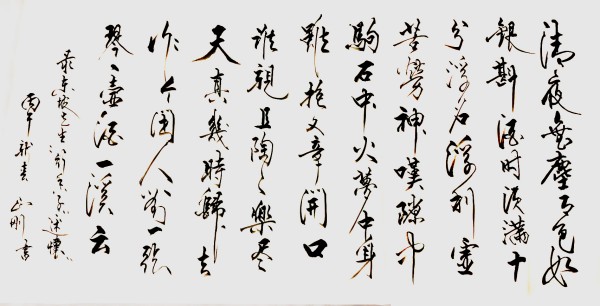 清夜無塵月色如
銀斟酒时須滿十
分浮名浮利虛
苦勞神嘆隙中
駒石中火夢中身
雖抱文章開口
誰親且陶々樂尽
天真幾時歸去
作个閑人对一張
琴一壺酒一溪云
录東坡先生詞行香子述懷
丙午新春 刚書